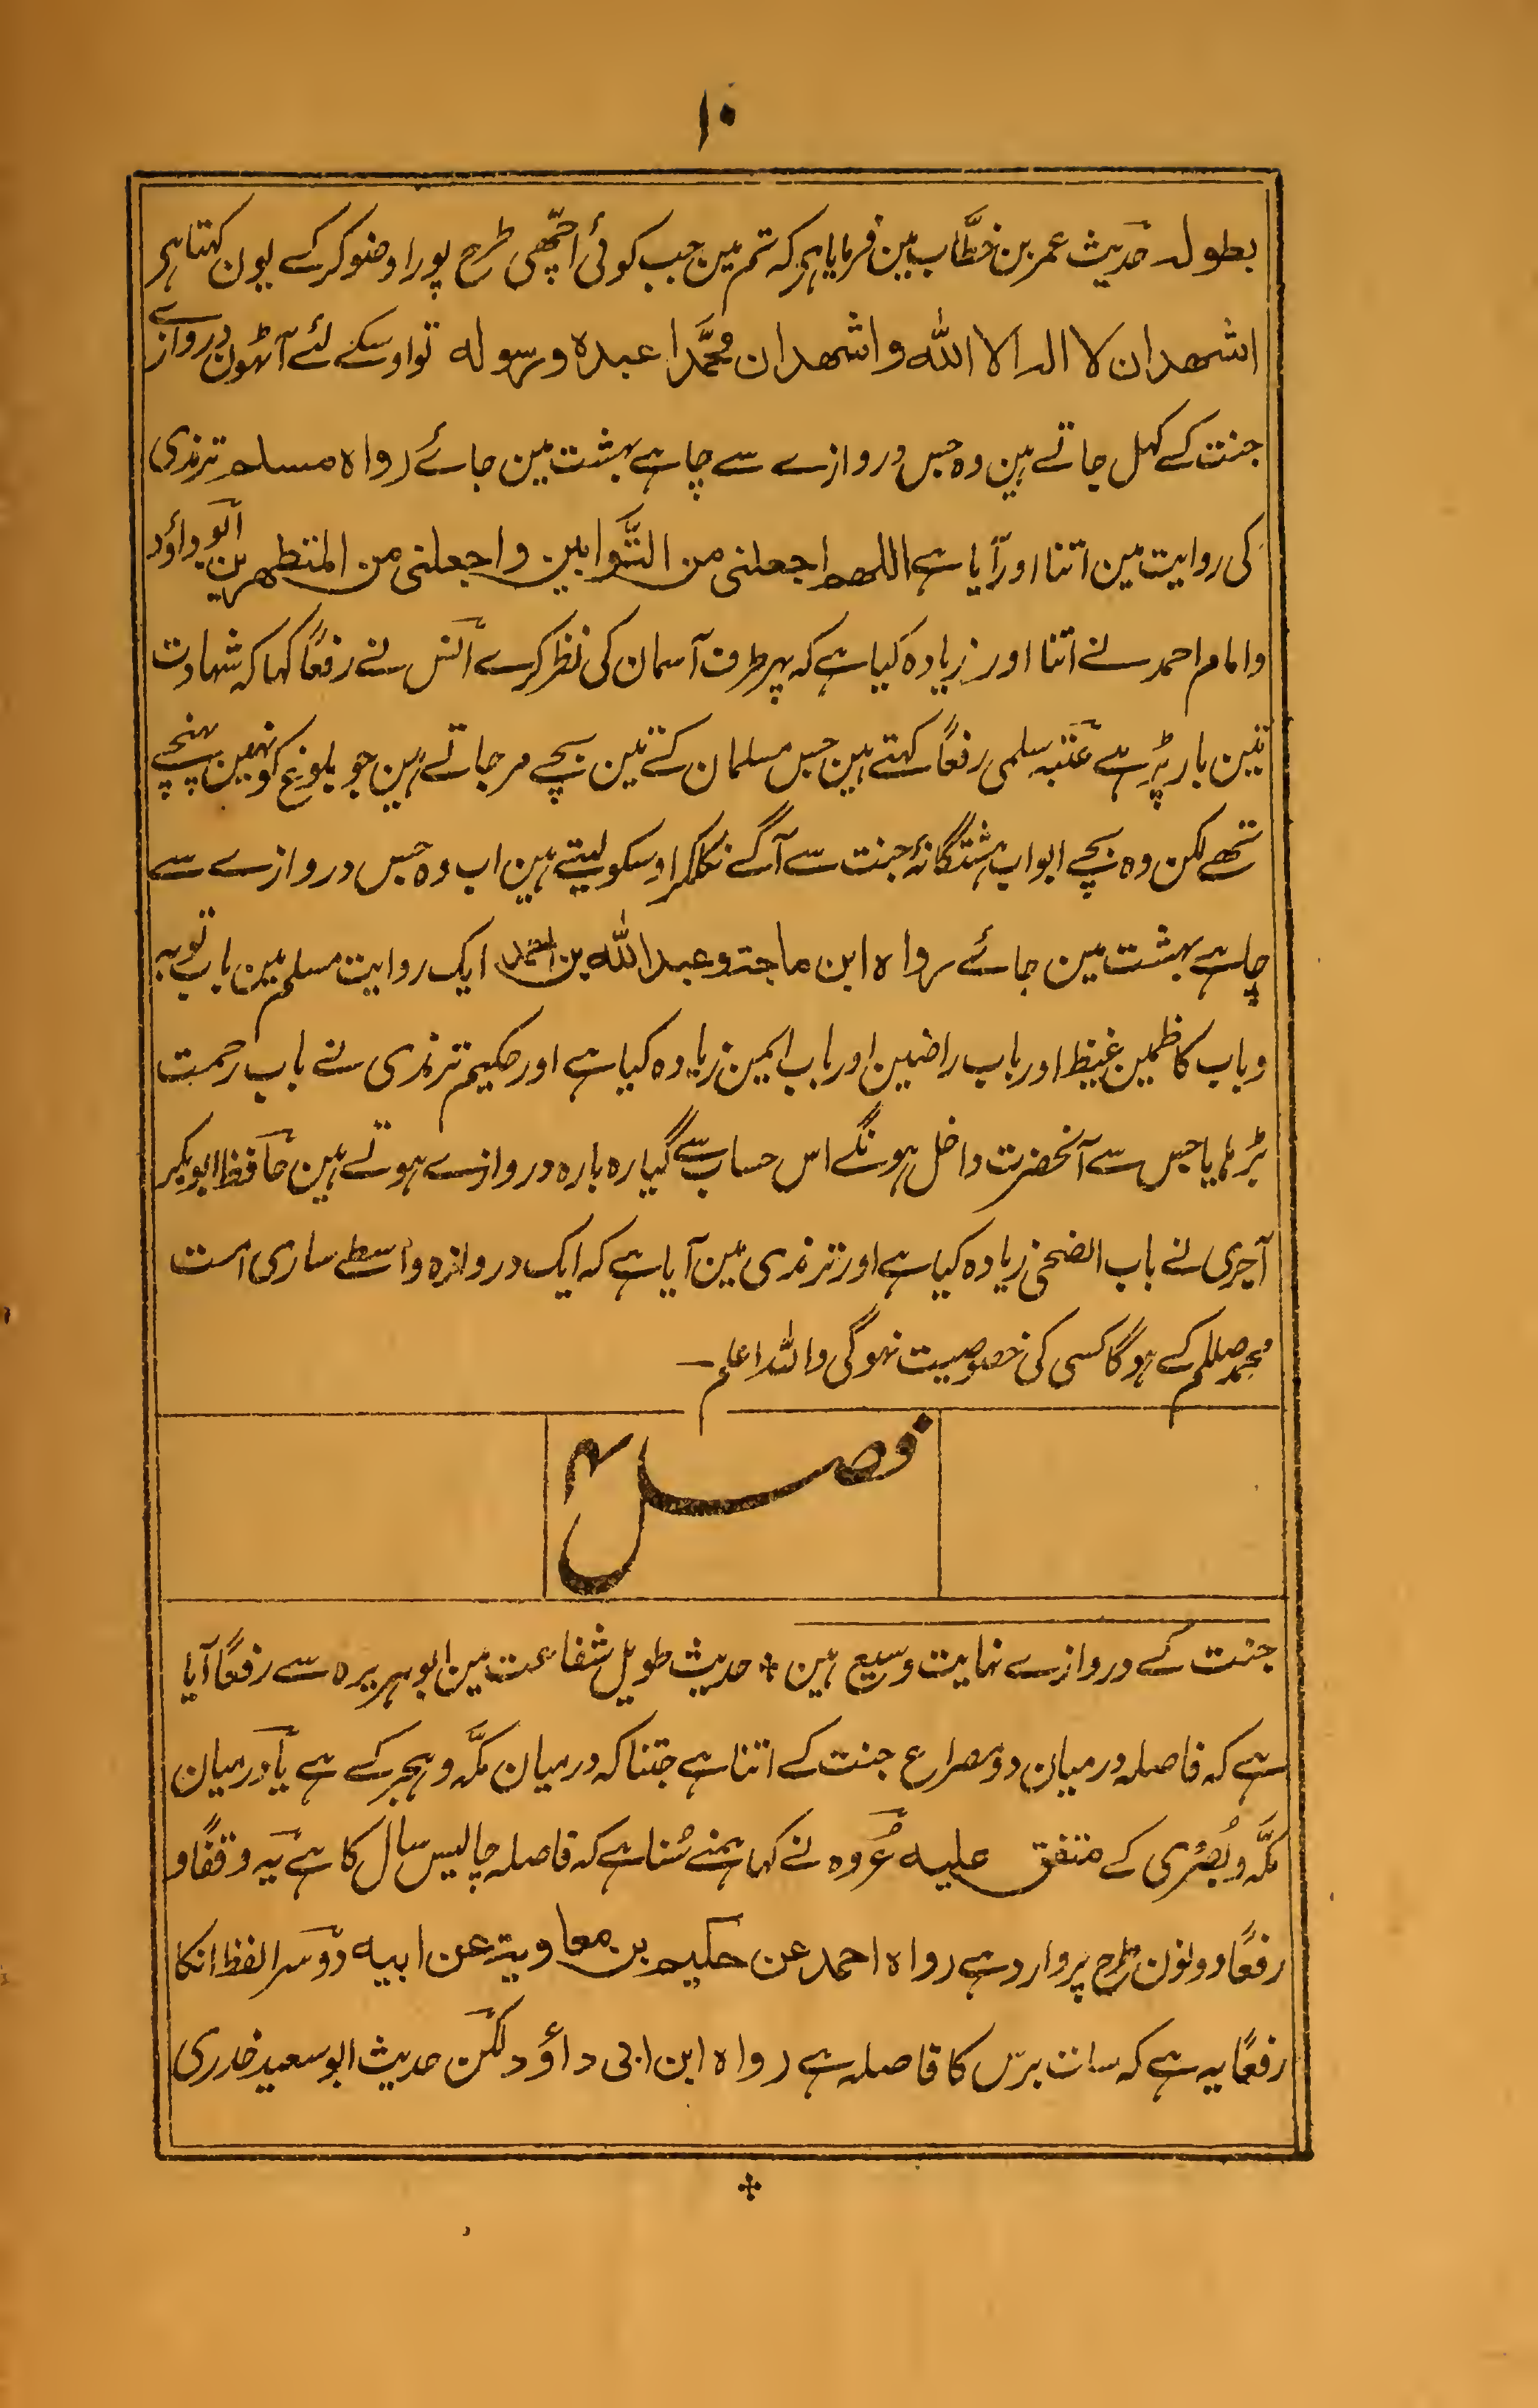 ۱۰
بطولہ حدیث عمر بن خطّاب مین فرمایا ہر کہ تم مین جب کوئی اچّھی طرح پورا وضو کرکے یون کہتا ہر
اشھد ان لا الہ الا اللّٰہ واشھد ان محمّدا عبدہ ورسولہ تو اوسکے لئے آٹھون دروازے
جنت کے کہل جاتے ہین وہ جس دروازے سے چاہے بہشت مین جائے رواہ مسلم ترمذی
کی روایت مین اتنا اور آیا ہے اللھم اجعلنی من التَّوابین واجعلنی من المتطھرین ابو داؤد
وامام احمد نے اتنا اور زیادہ کیا ہے کہ پہر طرف آسمان کی نظر کرے انس نے رفعًا کہا کہ شہادت
تین بار پڑہے عتبہ سلمی رفعًا کہتے ہین جس مسلمان کے تین بچے مر جاتے ہین جو بلوغ کو نہین پہنچے
تھے لکن وہ بچے ابواب ہشتگانۂ جنت سے آگے نکلکر اوسکو لیتے ہین اب وہ جس دروازے سے
چاہے بہشت مین جائے رواہ ابن ماجۃ وعبد اللّٰہ بن احمد ایک روایت مسلم مین باب توبہ
وباب کاظمین غیظ اور باب راضین اور باب ایمین زیادہ کیا ہے اور حکیم ترمذی نے باب رحمت
بڑہایا جس سے آنحضرت داخل ہونگے اس حساب سے گیارہ بارہ دروازے ہوتے ہین حافظ ابوبکر
آجری نے باب الضحی زیادہ کیا ہے اور ترمذی مین آیا ہے کہ ایک دروازہ واسطے ساری امت
محمد صللم کے ہوگا کسی کی خصوصیت نہوگی واللّٰہ اعلم ــ
فصل
جنت کے دروازے نہایت وسیع ہین * حدیث طویل شفاعت مین ابوہریرہ سے رفعًا آیا
ہے کہ فاصلہ درمیان دو مصراع جنت کے اتنا ہے جتنا کہ درمیان مکّہ وہجر کے ہے یا درمیان
مکّہ وبُصرٰی کے متفق علیہ عُروہ نے کہا ہمنے سُنا ہے کہ فاصلہ چالیس سال کا ہے یہ وقفًا و
رفعًا دونون طرح پر وارد ہے رواہ احمد عن حکیم بن معاویۃ عن ابیہ دوسرا لفظ انکا
رفعًا یہ ہے کہ سات برس کا فاصلہ ہے رواہ ابن ابی داؤد لکن حدیث ابو سعید خدری